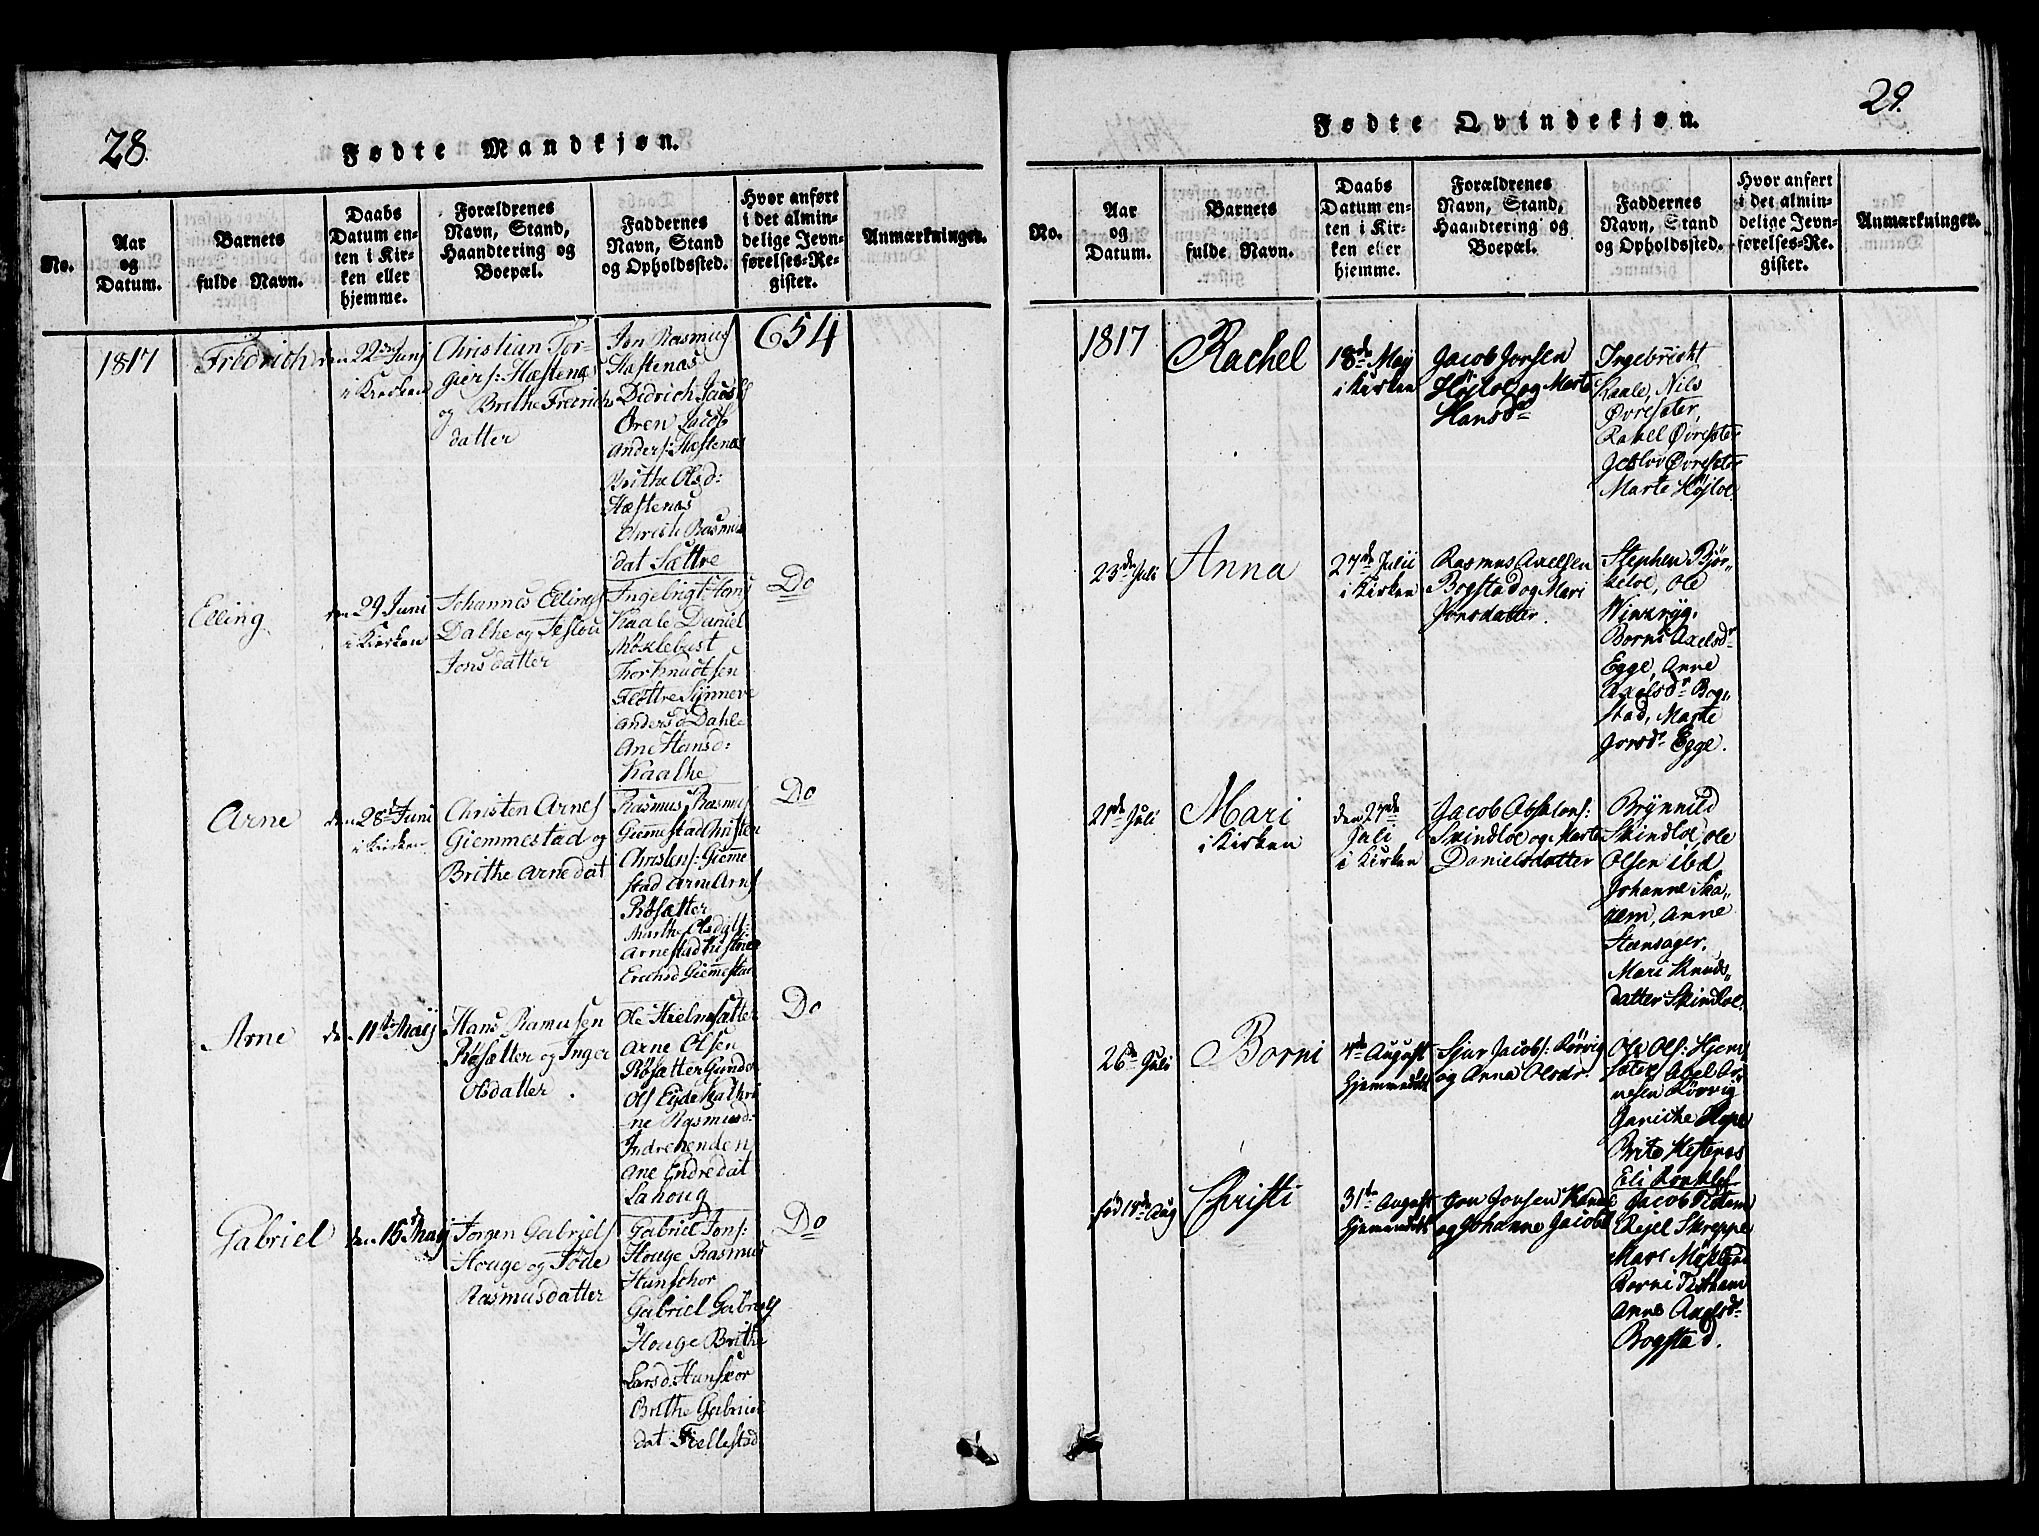 28.
Fødte Mandkjøn.
No.
Aar
og
Datum.
Barnets
fulde Navn.
Daabs
Datum en-
ten i Kir-
ken eller
hjemme.
Forældrenes
Navn, Stand,
Haandtering og
Boepæl.
Faddernes
Navn, Stand
og Opholdssted.
Hvor anført
i det almin-
delige Jevn-
førelses-Re-
gister.
Anmærkninger.
1817
Fredrich
den 22de Junj
i Kirken
Christian Tor-
giers: Hæstenæs
og Brithe Fredrichs
datter
Jon Rasmus
Hæstenas
Didrich Jacobs
Ören Jacob
Anders: Hæstenæs
Brithe Olsd:
Hæstenas
Christi Rasmus
dat Sættre
654
Elling
den 29 Juni
i Kirken
Johannes Ellings
Dalhe og Jeslou
Jons datter
Ingebrigt Hans
Kaale Daniel
Möklebust
Thor Knudtsen
Flöttre Synneve
Andersd Dahle
Ane Hansd:
Kaalhe
Do
Arne
den 28de Juni
i Kirken
Christen Arnes
Giemmestad og
Brithe Arne dat
Rasmus Rasmus
Giemestad Christen
Christens: Gieme
stad Arne Arns
Røsætter
Marthe Olsdatt:
Arnestad Kistine
Erichsd Giemestad
Do
Arne
den 11te Maij
Hans Ramusen
Røsætter og Inger
Olsdatter
Ole Hielmsætter
Arne Olsen
Røsætter Gunder
Ols Eyde Kathri
ne Rasmusd:
Indrehenden
Ane Endredat
Lahoug
Do
Gabriel
den 15de Maij
Jorgen Gabriels
Houge og Töde
Rasmusdatter
Gabriel Jons:
Houge Rasmus
Hunschor
Gabriel Gabriels
Houge Brithe
Larsd. Hunskor
Brithe Gabriel
dat Fiellestad
Do
29.
Fødte Qvindekjøn.
No.
Aar
og
Datum.
Barnets
fulde Navn.
Daabs
Datum en-
ten i Kir-
ken eller
hjemme.
Forældrenes
Navn, Stand,
Haandtering og
Boepæl.
Faddernes
Navn, Stand
og Opholdssted.
Hvor anført
i det almin-
delige Jevn-
førelses-Re-
gister.
Anmærkninger.
1817
Rachel
18de Maj
i Kirken
Jacob Jonsen
Høiloe og Marte
Hansdr
Ingebricht
Kaale, Nils
Øvresæter,
Rakel Øvresæter
Jeslov Øvresæter
Marte Højloe
23de Juli
Anna
27de Julii
i Kirken
Rasmus Axelsen
Bogstad og Mari
Jonsdatter.
Stephen Bjør-
keloe, Ole
Winsryg,
Borni Axelsdr
Egge, Anne
Axelsdr Bog-
stad, Marte
Jonsdr Egge.
21de Juli
Mari
i Kirken
den 27de
Juli
i Kirken
Jacob Absalons:
Skindloe og Marte
Danielsdatter
Brynnild
Skindloe, Ole
Olsen ibd
Johanne Ska-
rem, Anne
Steensager,
Mari Knuds-
datter Skindloe.
26de Juli
Borni
4de August
Hjemmedøbt
Sjur Jacobs: Rørvig
og Anna Olsdr.
Ole Ols: Hjem
sæter, Abel Ar-
nesen Rørvig
Janicke
Brite Hestenes
Eli
fød 18de Aug
Christi
31te August
Hjemmedøbt
Jon Jonsen
og Johanne Jacobs
Jacob Tistam
Rejel Skreppe
Mari
Borni Tistham
Anne Axelsdr
Bogstad.